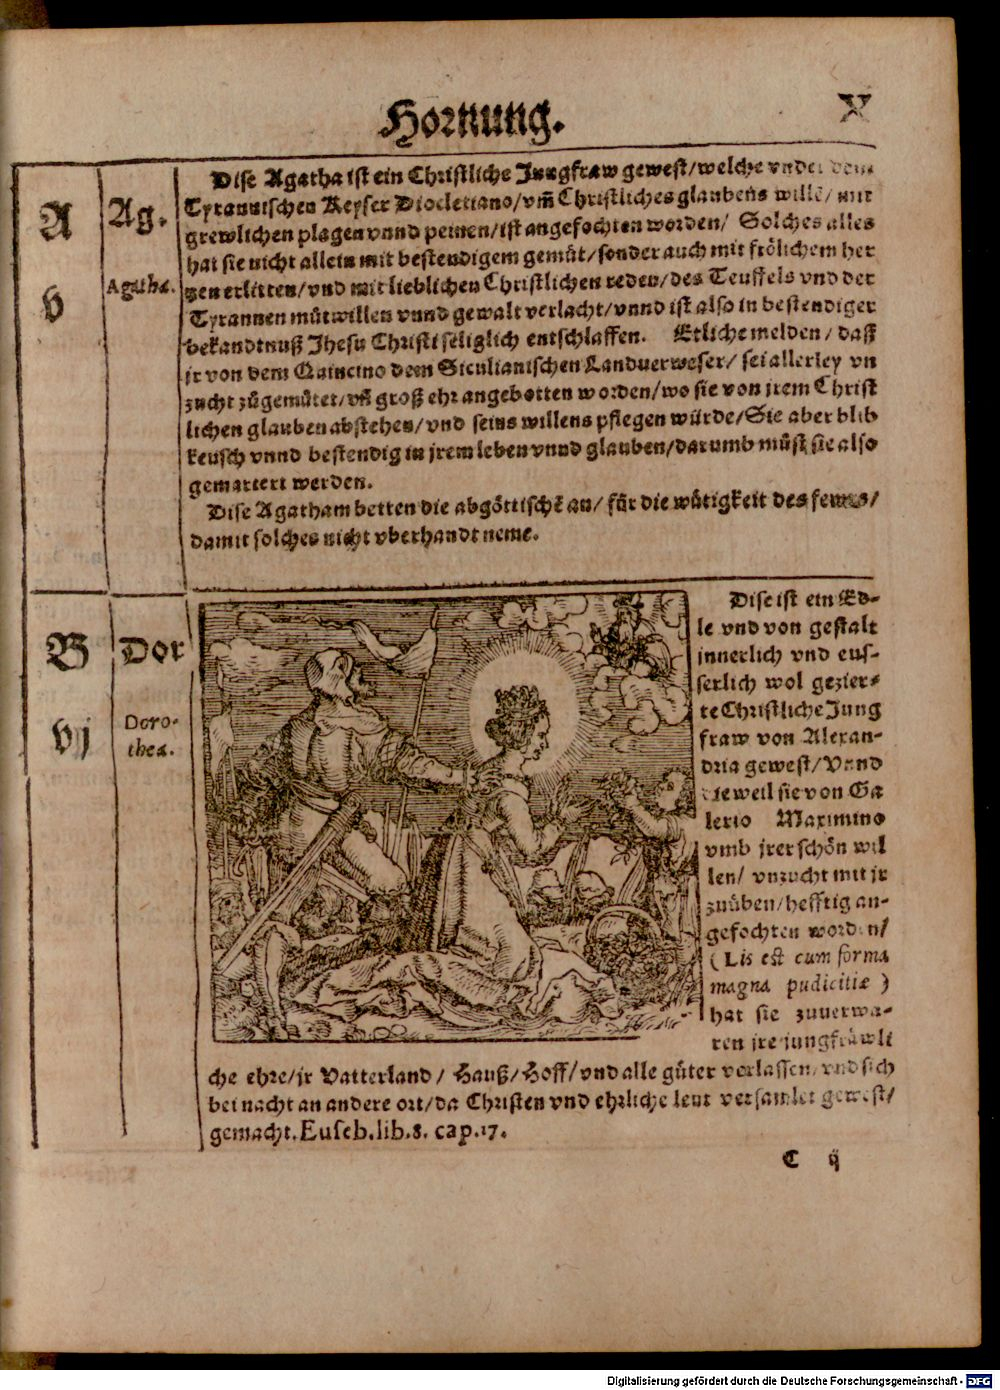 Hornung.
X
A
v
Ag.
Agatha.
Dise Agatha ist ein Christliche Jungfraw gewest/welche vnder dem
Tyrannischen Keyser Diocletiano/vm̃ Christliches glaubens willē/ mit
grewlichen plagen vnnd peinen/ist angefochten worden/ Solches alles
hat sie nicht allein mit bestendigem gemüt/sonder auch mit frölichem her
tzen erlitten/vnd mit lieblichen Christlichen reden/des Teuffels vnd der
Tyrannen mütwillen vnnd gewalt verlacht/vnnd ist also in bestendiger
bekandtnuß Jhesu Christi seliglich entschlaffen. Etliche melden/ daß
jr von dem Quincino dem Siculianischen Landuerweser/ sei allerley vn
zucht zůgemůtet/vñ groß ehr angebotten worden/wo sie von jrem Christ
lichen glauben abstehen/vnd seins willens pflegen würde/Sie aber blib
keusch vnnd bestendig in jrem leben vnnd glauben/darumb můst sie also
gemartert werden.
Dise Agatham betten die abgöttischē an/ für die wütigkeit des fewrs/
damit solches nicht vberhandt neme.
B
vj
Dor
Doro-
thea.
Dise ist ein Ed-
le vnd von gestalt
innerlich vnd eus-
serlich wol gezier-
te Christliche Jung
fraw von Alexan-
dria gewest/Vnnd
dieweil sie von Ga
lerio Maximino
vmb jrer schön wil
len/ vnzucht mit jr
zuüben/hefftig an-
gefochten worden/
(Lis est cum forma
magna pudicitiæ)
hat sie zuuerwa-
ren jre jungfräwli
che ehre/jr Vatterland/ Hauß/Hoff/vnd alle güter verlassen/vnd sich
bei nacht an andere ort/da Christen vnd ehrliche leut versamlet gewest/
gemacht. Euseb.lib.8. cap.17.
C ij
Digitalisierung gefördert durch die Deutsche Forschungsgemeinschaft - DFG